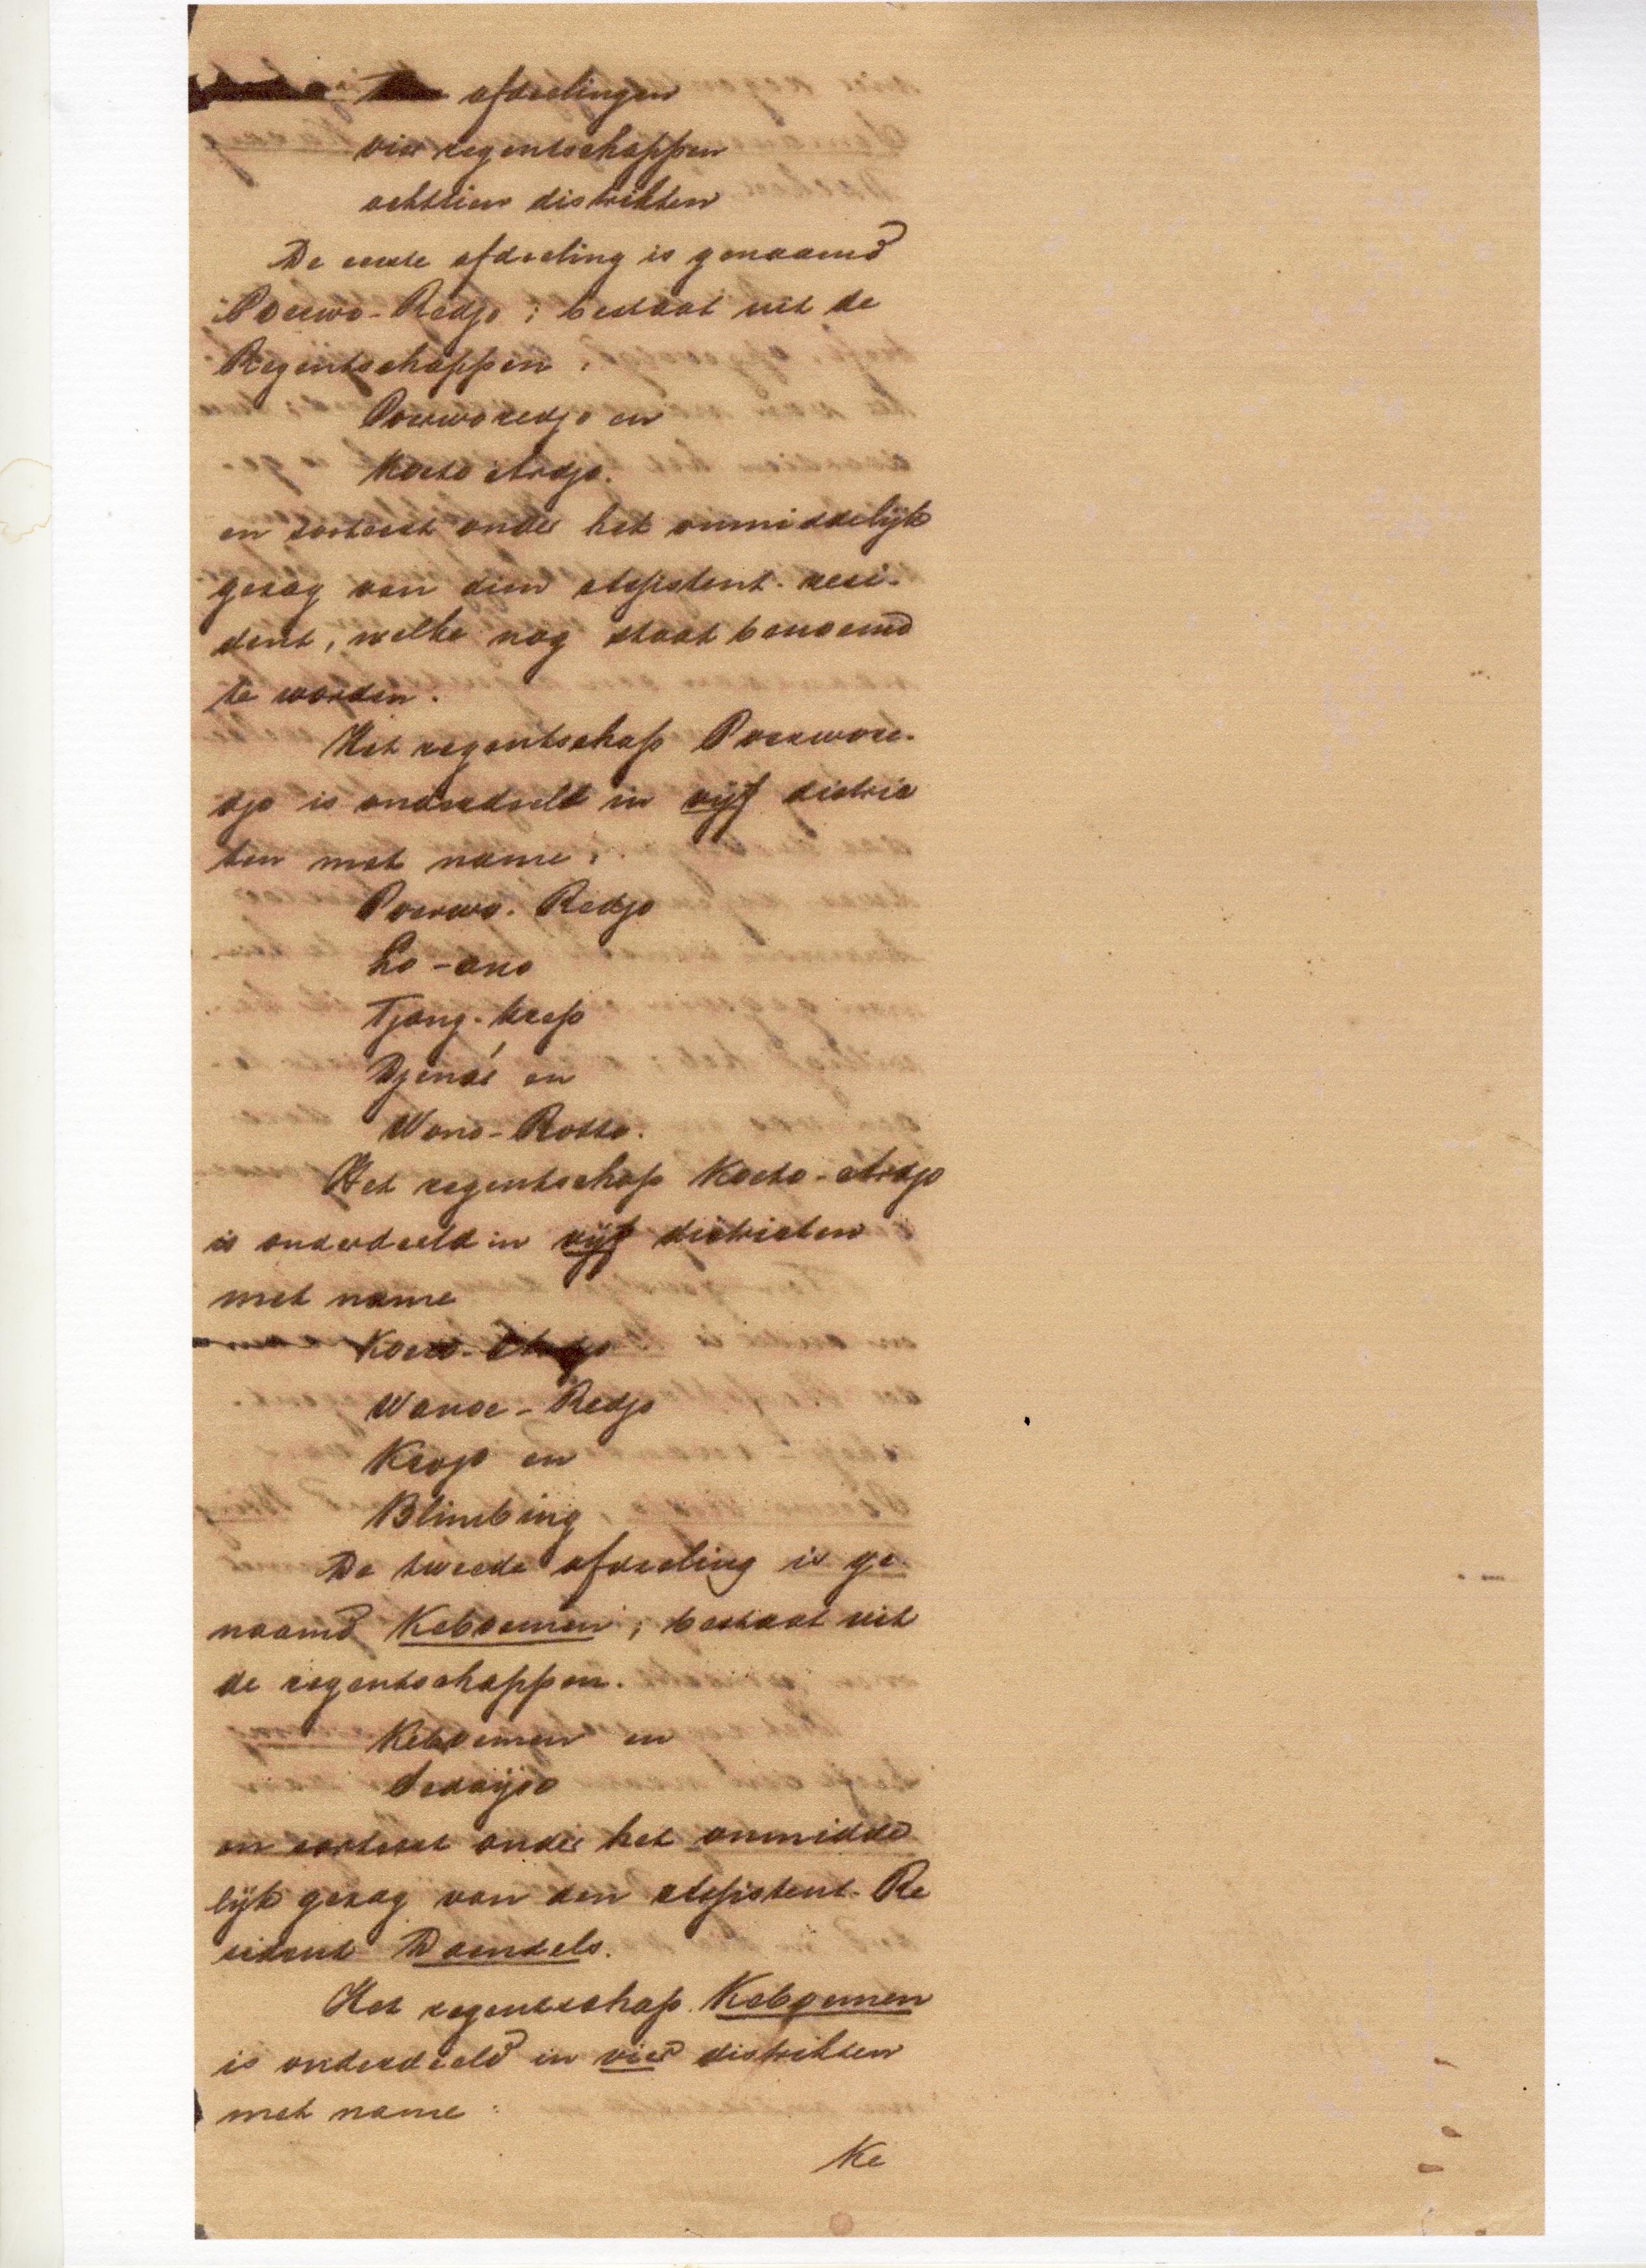 afdeelingen
vier regentschappen
achttien distrikten
De eerste afdeeling is genaamd
Poerwo-Redjo; bestaat uit de
Regentschappen:
Poerworedjo en
Koeto Ardjo.
en sorteert onder het onmiddelijk
gezag van dien Assistent-resi-
dent, welke nog staat benoemd
te worden.
Het regentschap Poerwore-
djo is onderdeeld in vijf distric
ten met name:
Poerwo-Redjo
Lo-ano
Tjang-krep
Djenár en
Wono-Rotto.
Het regentschap Koeto-Ardjo
is onderdeeld in vijf districten
met name
Koeto-Ardjo
Wonoe-Redjo
Kroijo en
Blimbing.
De tweede afdeeling is ge-
naamd Keboemen; bestaat uit
de regentschappen.
Keboemen en
en sorteert onder het onmidde
lijk gezag van den Assistent-Re
sident Daendels.
Het regentschap Keboemen
is onderdeeld in vier distrikten
met name:
Ke